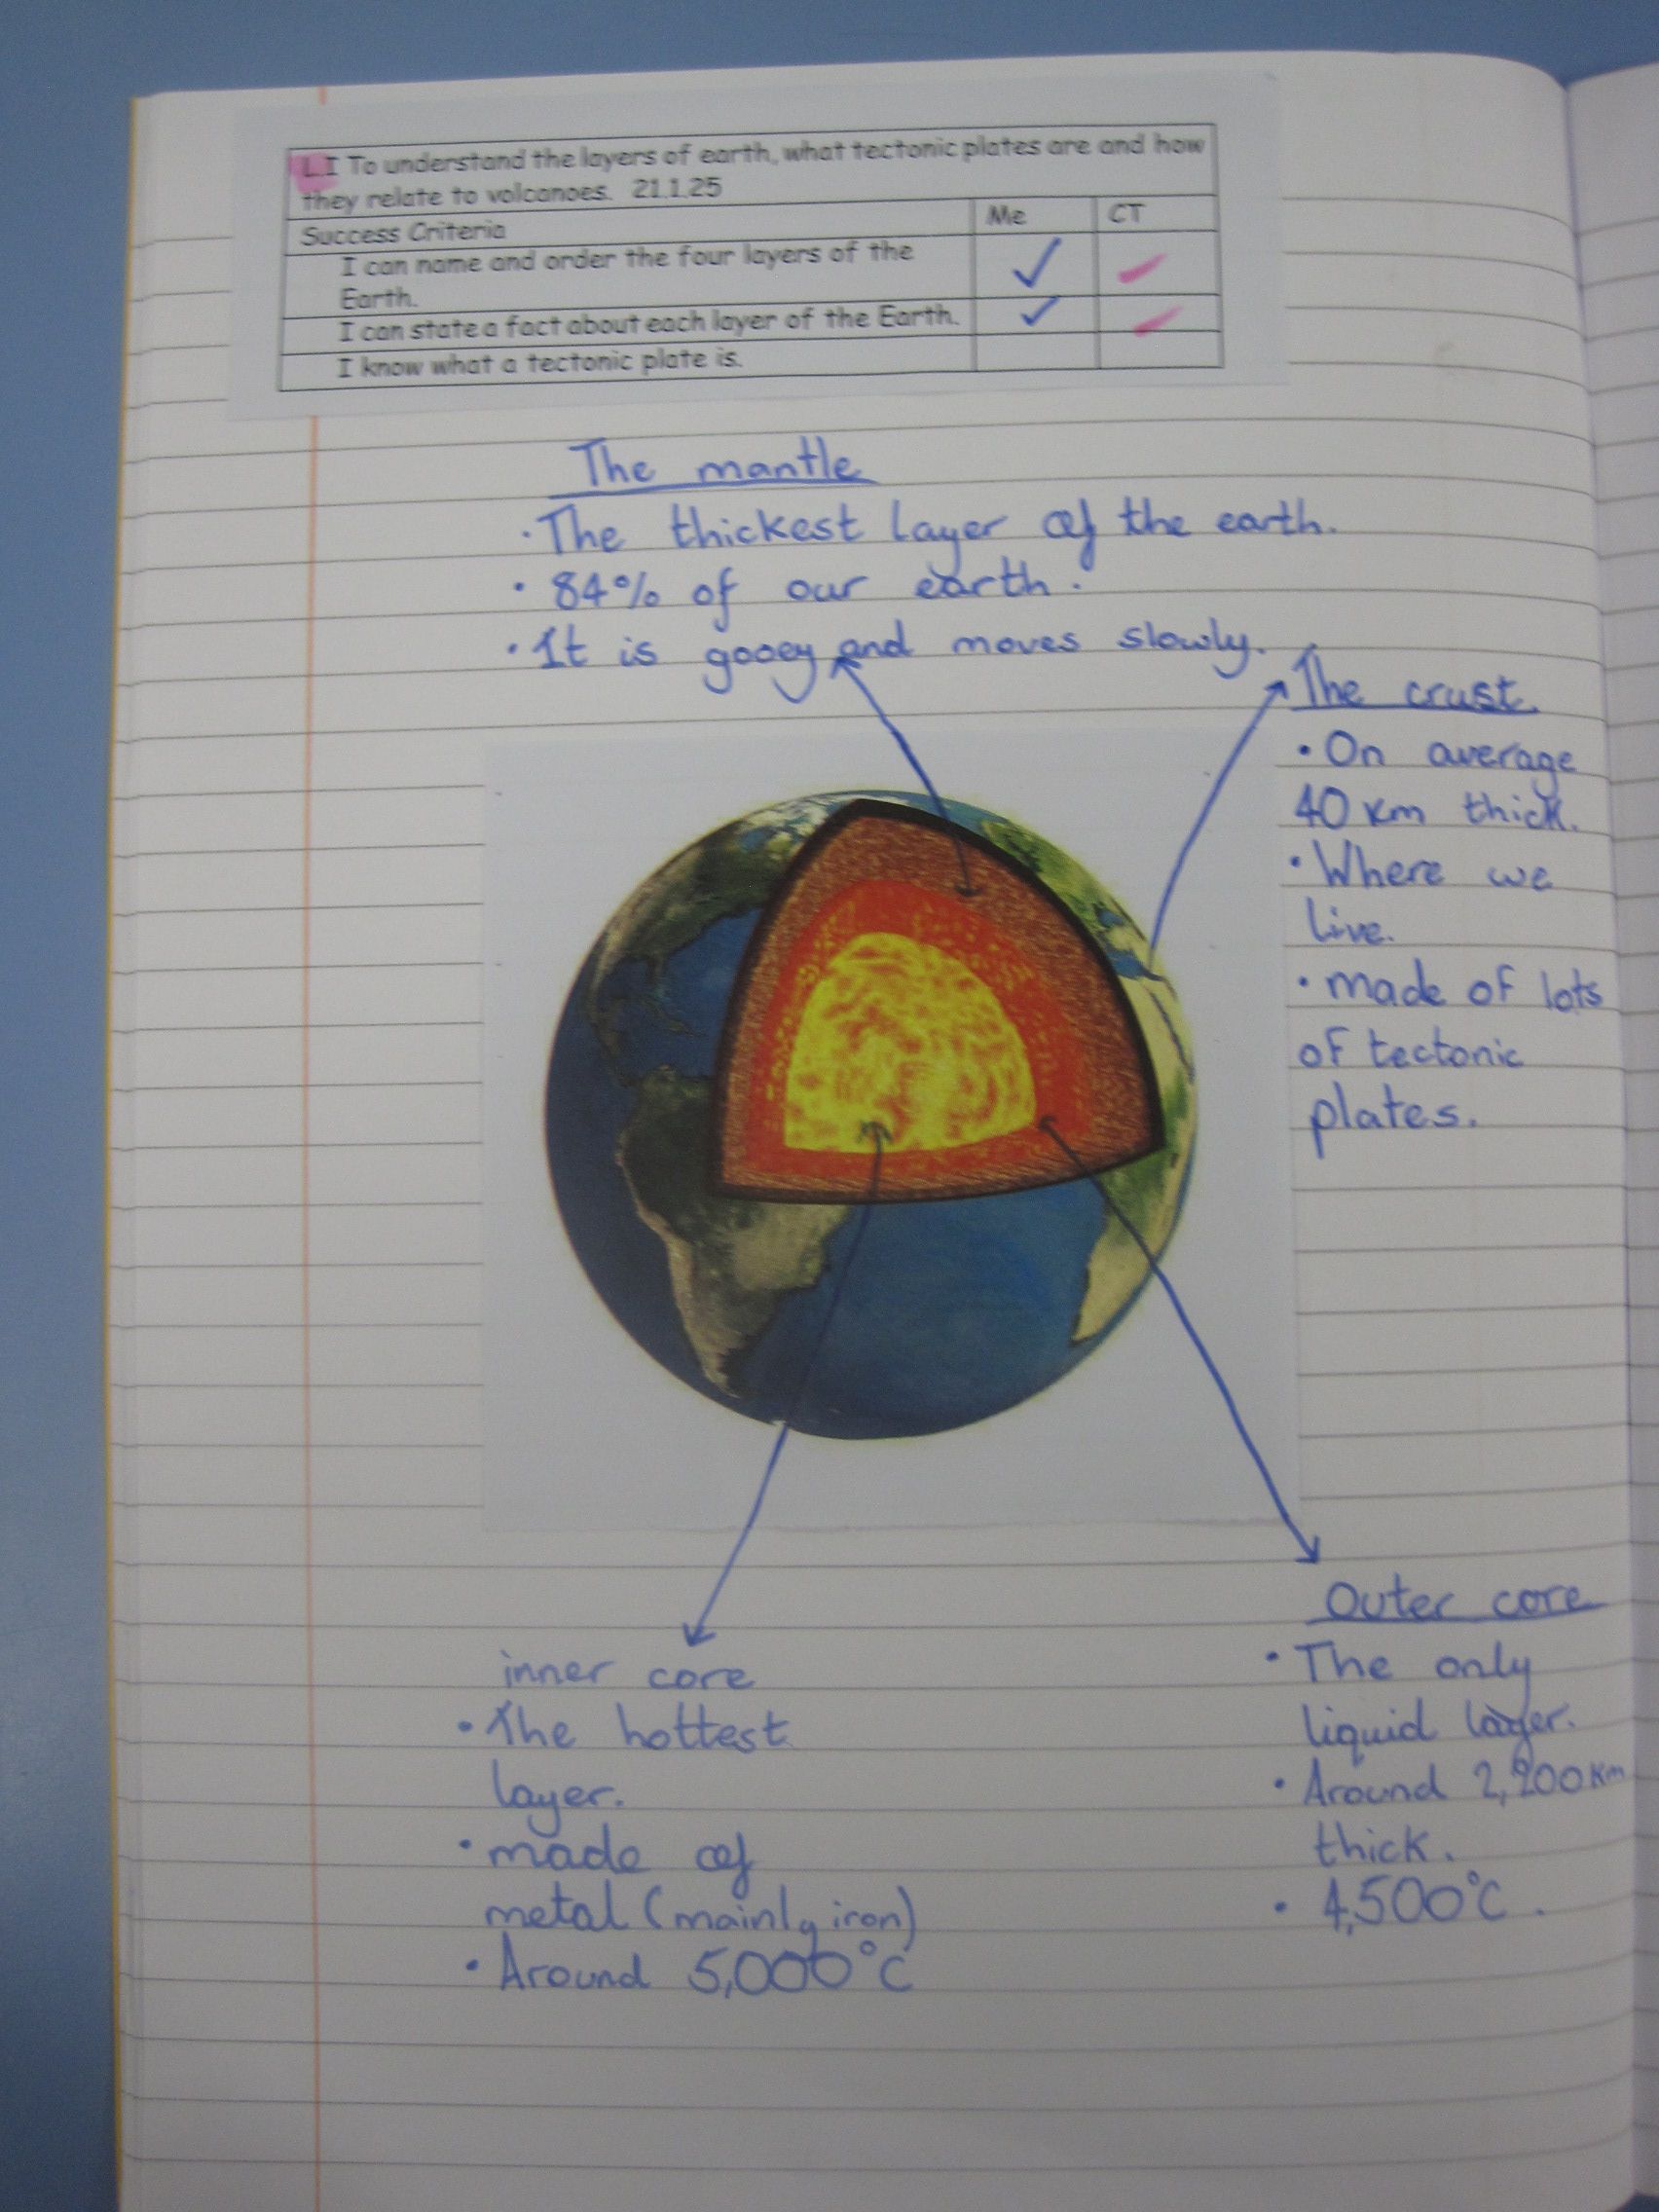 L.I To understand the layers of earth, what tectonic plates are and how
they relate to volcanoes. 21.1.25
Success Criteria
Me
CT
I can name and order the four layers of the
Earth.
I can state a fact about each layer of the Earth.
I know what a tectonic plate is.
The mantle
· The thickest layer of the earth.
· 84% of our earth.
· It is gooey and moves slowly.
The crust
· On average
40 km thick.
· Where we
live.
· made of lots
of tectonic
plates.
inner core
· The hottest
layer.
· made of
metal (mainly iron)
· Around 5,000°C
Outer core
· The only
liquid layer.
· Around 2,200 km
thick.
· 4,500°C.